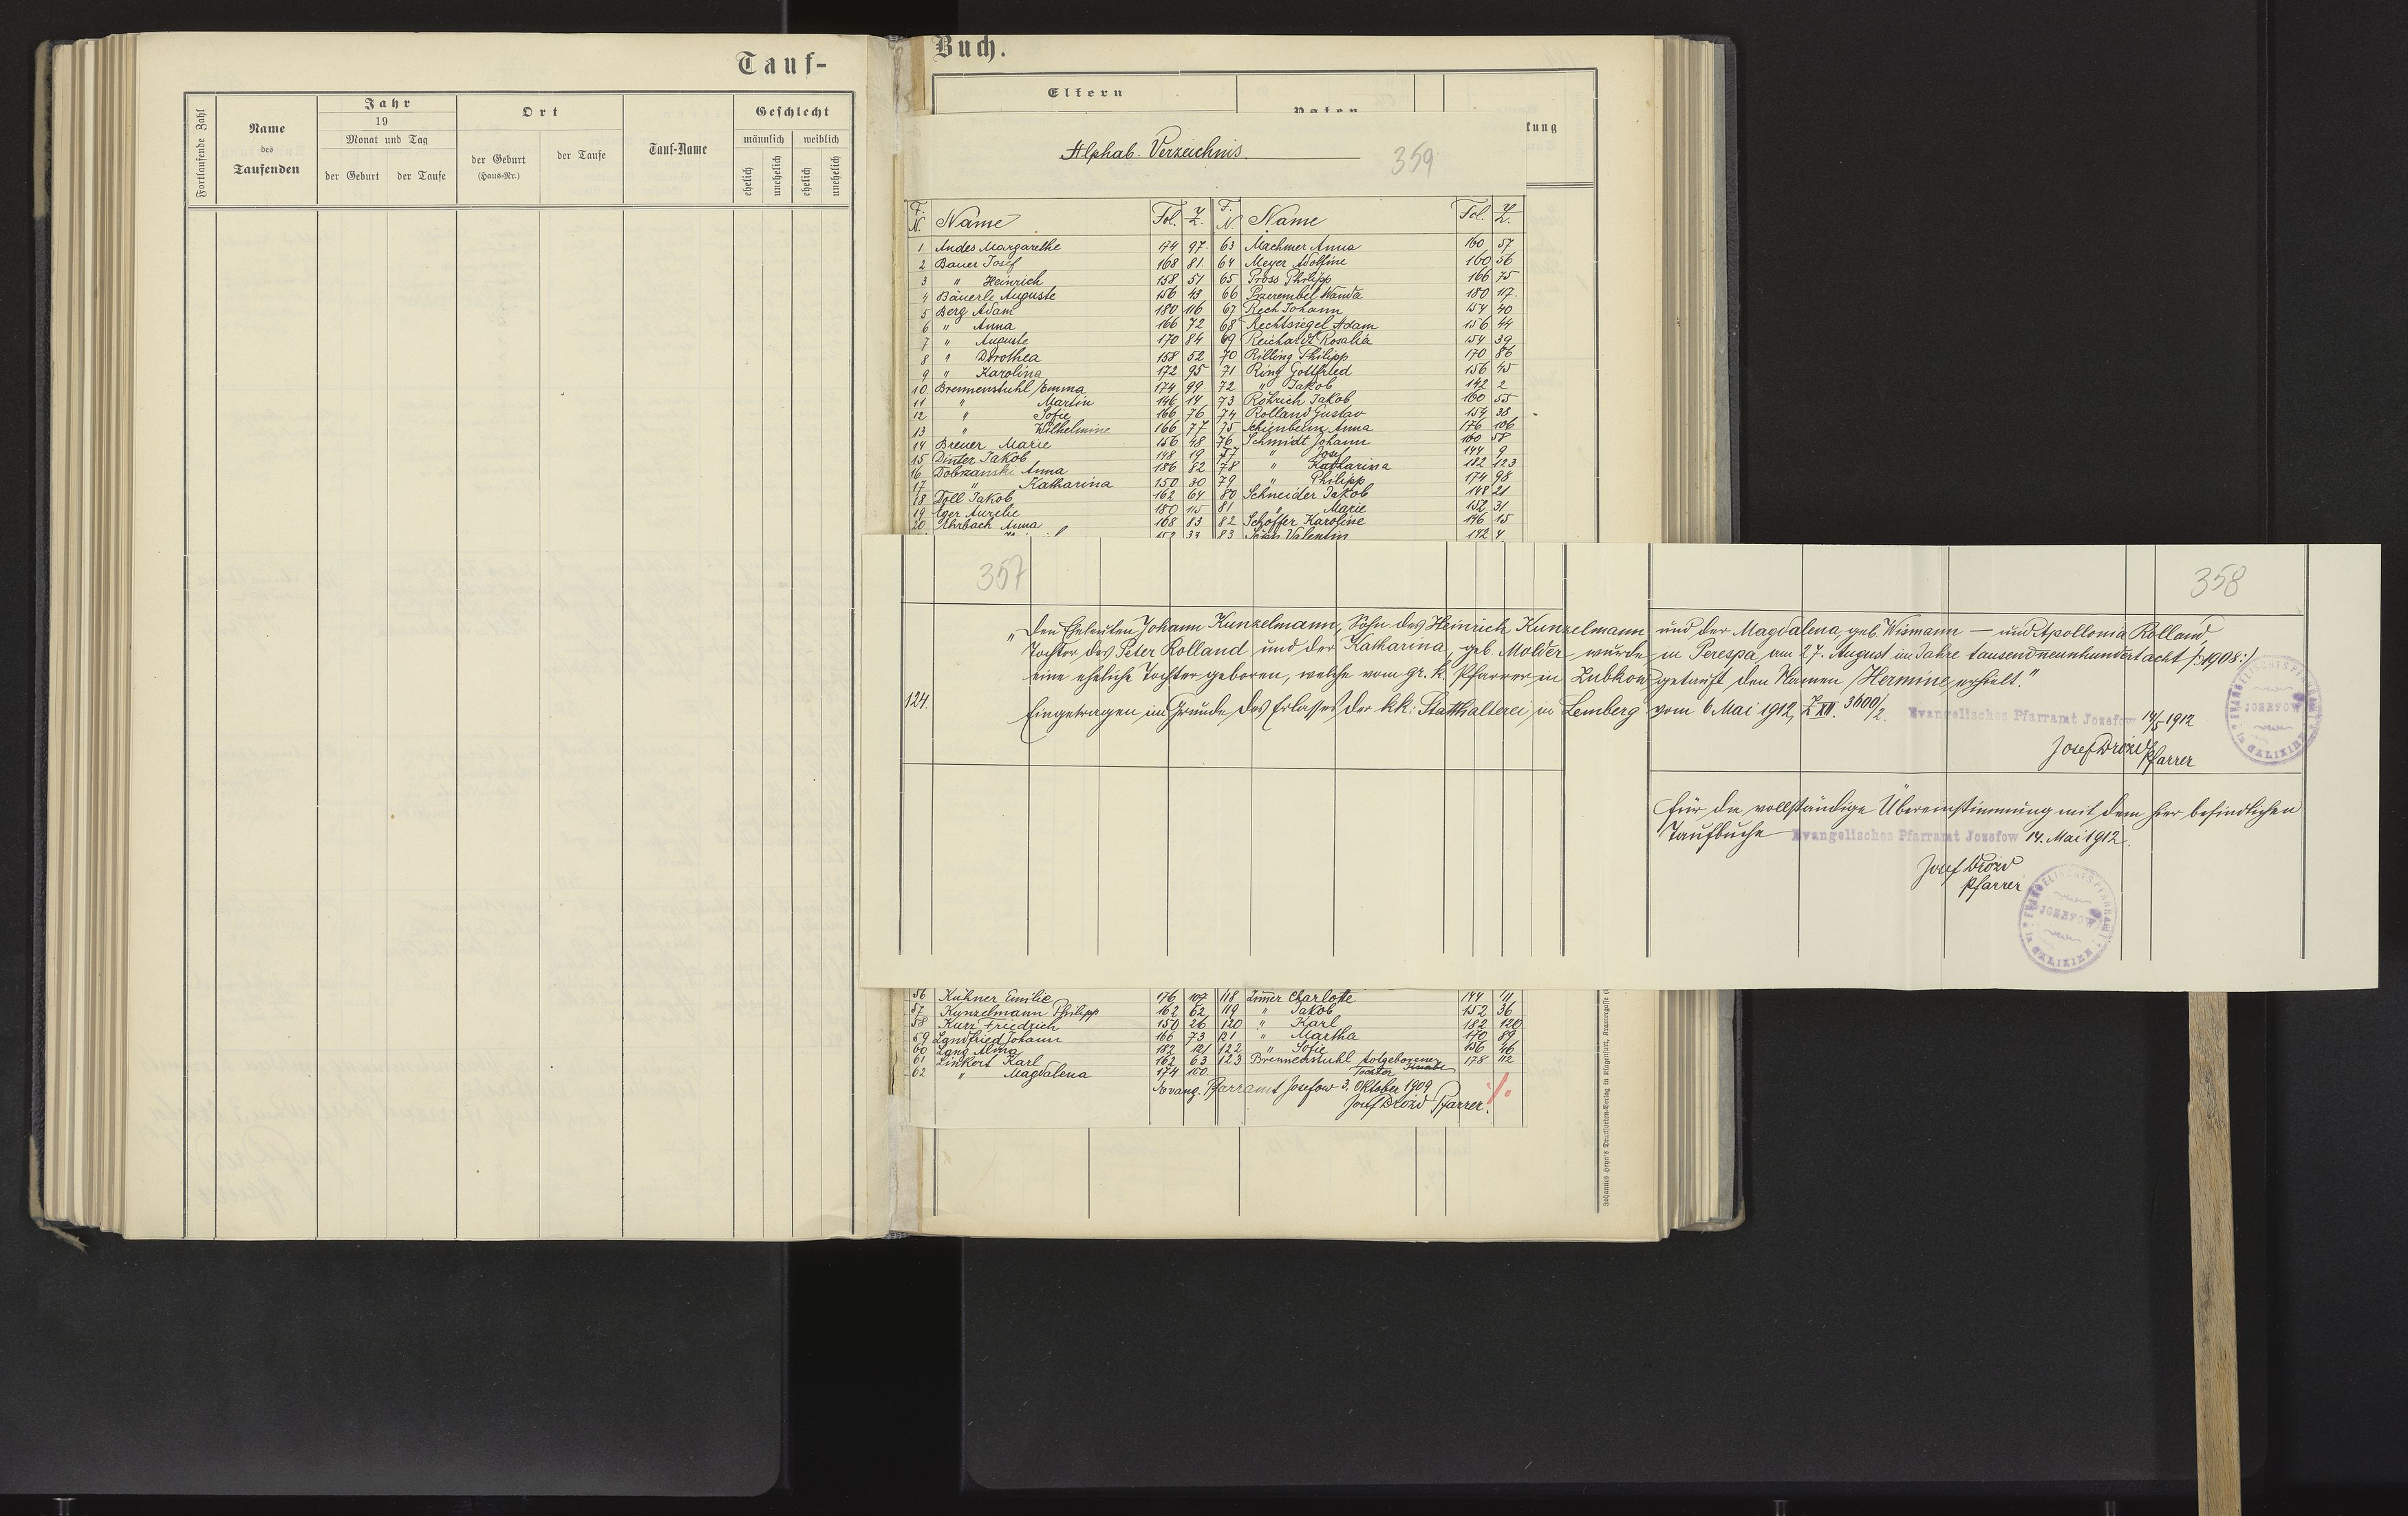 Tauf-
Fortlaufende Zahl
Name
des
Taufenden
Jahr
19
Monat und Tag
der Geburt
der Taufe
Ort
der Geburt
(Haus-Nr.)
der Taufe
Tauf-Name
Geschlecht
männlich
weiblich
ehelich
unehelich
ehelich
unehelich
Buch.
Eltern
Paten
kung
Alphab. Verzeichnis.
359
F. N. Name Fol. Z. F. N. Name Fol. Z.
1 Andes Margarethe 174 97. 63 Machmer Anna 160 57
2 Bauer Josef 168 81. 64 Meyer Adolfine 160 56
3 " Heinrich 158 51 65 Pross Philipp 166 75
4 Bäuerle Auguste 156 43 66 Przerembel Wanda 180 117.
5 Berg Adam 180 116 67 Rech Johann 154 40
6 " Anna 166 72 68 Rechtsiegel Adam 156 44
7 " Auguste 170 84 69 Reichardt Rosalia 154 39
8 " Dorothea 158 52 70 Rilling Philipp 170 86
9 " Karolina 172 95 71 Ring Gottfried 156 45
10. Brennenstuhl Emma 174 99. 72 " Jakob 142 2
11 " Martin 146 14 73 Röhrich Jakob 160 55
12 " Sofie 166 76 74 Rolland Gustav 154 38
13 " Wilhelmine 166 77 75 Schienbein Anna 176 106
14 Breuer Marie 156 48 76 Schmidt Johann 160 58
15 Dinter Jakob 148 19 77 " Josef 144 9
16 Dobrzanski Anna 186 82 78 " Katharina 182 123
17 " Katharina 150 30 79 " Philipp 174 98
18 Doll Jakob 162 64 80 Schneider Jakob 148 21
19 Eger Aurelie 180 115 81 " Marie 152 31
20 Ehrbach Anna 168 83 82 Schöffer Karoline 146 15
83 Valentin 142 4
357
358
124.
"Den Eheleuten Johann Kunzelmann, Sohn des Heinrich Kunzelmann und der Magdalena, geb. Wismann — und Apollonia Rolland
Tochter des Peter Rolland und der Katharina, geb. Molder wurde in Perespa, am 27. August im Jahre tausendneunhundertacht /:1908:/
eine eheliche Tochter geboren, welche vom gr. k. Pfarrer in Zubkow getauft den Namen "Hermine" erhielt."
Eingetragen im Grunde des Erlasses der k.k. Statthalterei in Lemberg vom 6 Mai 1912, Z XII. 3600/2. Evangelisches Pfarramt Jozefow 14/5 1912
Josef Drozd
Pfarrer
EVANGELISCHES PFARRAMT JOZEFOW in GALIZIEN
Für die vollständige Übereinstimmung mit dem hier befindlichen
Taufbuche Evangelisches Pfarramt Jozefow 14. Mai 1912.
Josef Drozd
Pfarrer
EVANGELISCHES PFARRAMT JOZEFOW in GALIZIEN
56 Kühner Emilie 176 107 118 Zimmer Charlotte 144 11
57 Kunzelmann Philipp 162 62 119 " Jakob 152 36
58 Kurz Friedrich 150 26 120 " Karl 182 120
59 Landfried Johann 166 73 121 " Martha 170 89
60 Lang Alma 182 121 122 " Sofie 156 46
61 Linkert Karl 162 63 123 Brennenstuhl totgeborener 178 112
62 " Magdalena 174 100. Tochter Knabe
Evang. Pfarramt Josefow 3. Oktober 1909
Josef Drozd Pfarrer.